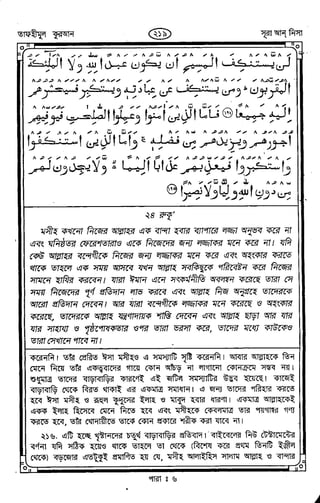 তাফহীমুল কুরআন
২১৯
সূরা আন্ নিসা
لَنْ يَّسْتَنْكِفَ الْمَسِيْحُ اَنْ يَّكُوْنَ عَبْدًا لِّلّٰهِ وَلَا الْمَلٰٓئِكَةُ
الْمُقَرَّبُوْنَ ؕ وَمَنْ يَّسْتَنْكِفْ عَنْ عِبَادَتِهٖ وَيَسْتَكْبِرْ فَسَيَحْشُرُهُمْ
اِلَيْهِ جَمِيْعًا ۝ فَاَمَّا الَّذِيْنَ اٰمَنُوْا وَعَمِلُوا الصّٰلِحٰتِ فَيُوَفِّيْهِمْ
اُجُوْرَهُمْ وَيَزِيْدُهُمْ مِّنْ فَضْلِهٖ ۚ وَاَمَّا الَّذِيْنَ اسْتَنْكَفُوْا
وَاسْتَكْبَرُوْا فَيُعَذِّبُهُمْ عَذَابًا اَلِيْمًا ۙ وَّلَا يَجِدُوْنَ لَهُمْ
مِّنْ دُوْنِ اللّٰهِ وَلِيًّا وَّلَا نَصِيْرًا ۝
২৪ রুকূ'
মসীহ কখনো নিজের আল্লাহর এক বান্দা হবার ব্যাপারে লজ্জা অনুভব করে না
এবং ঘনিষ্ঠতর ফেরেশতারাও একে নিজেদের জন্য লজ্জাকর মনে করে না। যদি
কেউ আল্লাহর বন্দেগীকে নিজের জন্য লজ্জাকর মনে করে এবং অহংকার করতে
থাকে তাহলে এক সময় আসবে যখন আল্লাহ সবাইকে পরিবেষ্টন করে নিজের
সামনে হাযির করবেন। যারা ঈমান এনে সৎকর্মনীতি অবলম্বন করেছে তারা সে
সময় নিজেদের পূর্ণ প্রতিদান লাভ করবে এবং আল্লাহ নিজ অনুগ্রহে তাদেরকে
আরো প্রতিদান দেবেন। আর যারা বন্দেগীকে লজ্জাকর মনে করেছে ও অহংকার
করেছে, তাদেরকে আল্লাহ যন্ত্রণাদায়ক শাস্তি দেবেন এবং আল্লাহ ছাড়া আর যার
যার সাহায্য ও পৃষ্ঠপোষকতার ওপর তারা ভরসা করে, তাদের মধ্যে কাউকেও
তারা সেখানে পাবে না।
করেননি। তাঁর প্রেরিত ঈসা মসীহও এ সমস্যাটি সৃষ্টি করেননি। আবার আল্লাহকে তিন
মেনে নিয়ে তাঁর একত্ববাদের গায়ে কোন আঁচড় না লাগানো কোনক্রমে সম্ভব নয়।
শুধুমাত্র তাদের বাড়াবাড়ির কারণেই এই জটিল সমস্যাটির উদ্ভব হয়েছে। কাজেই
বাড়াবাড়ি থেকে বিরত থাকাই এর একমাত্র সমাধান। এ জন্য তাদের পরিহার করতে
হবে ঈসা মসীহ ও রূহুল কুদুসের ইলাহ ও মাবুদ হবার ধারণা। একমাত্র আল্লাহকেই
একক ইলাহ হিসেবে মেনে নিতে হবে এবং মসীহকে কেবলমাত্র তার পয়গাম্বর গণ্য
করতে হবে, তাঁর খোদায়ীতে তাকে কোন প্রকারে শরীক করা যাবে না।
২১৬. এটি হচ্ছে খৃস্টানদের চতুর্থ বাড়াবাড়ির প্রতিবাদ। বাইবেলের নিউ টেস্টামেন্টের
বর্ণনা যদি সঠিক হয়েও থাকে তাহলে তা থেকে (বিশেষ করে প্রথম তিনটি ইঞ্জীল
থেকে) বড়জোর এতটুকুই প্রমাণিত হয় যে, মসীহ আলাইহিস সালাম আল্লাহ ও বান্দার
পারা : ৬